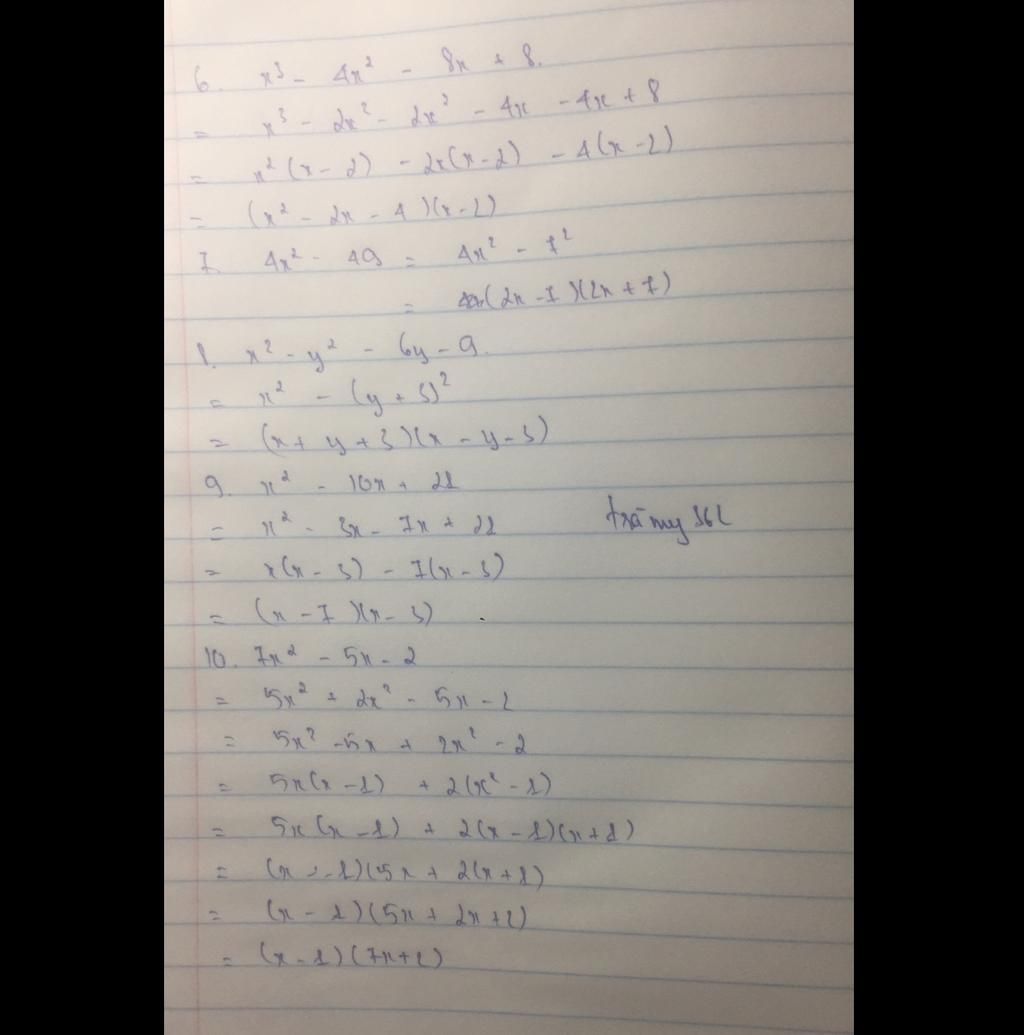 6. x³ - 4x² - 8x + 8.
= x³ - 2x² - 2x² - 4x - 4x + 8
= x² (x - 2) - 2x(x-2) - 4(x-2)
= (x² - 2x - 4)(x-2)
7. 4x² - 49 = 4x² - 7²
= (2x - 7)(2x + 7)
8. x² - y² - 6y - 9.
= x² - (y + 3)²
= (x + y + 3)(x - y - 3)
9. x² - 10x + 21
= x² - 3x - 7x + 21
trà my 36L
= x(x - 3) - 7(x - 3)
= (x - 7)(x - 3)
10. 7x² - 5x - 2
= 5x² + 2x² - 5x - 2
= 5x² - 5x + 2x² - 2
= 5x(x - 1) + 2(x² - 1)
= 5x(x - 1) + 2(x - 1)(x + 1)
= (x - 1)(5x + 2(x + 1)
= (x - 1)(5x + 2x + 2)
= (x - 1)(7x + 2)